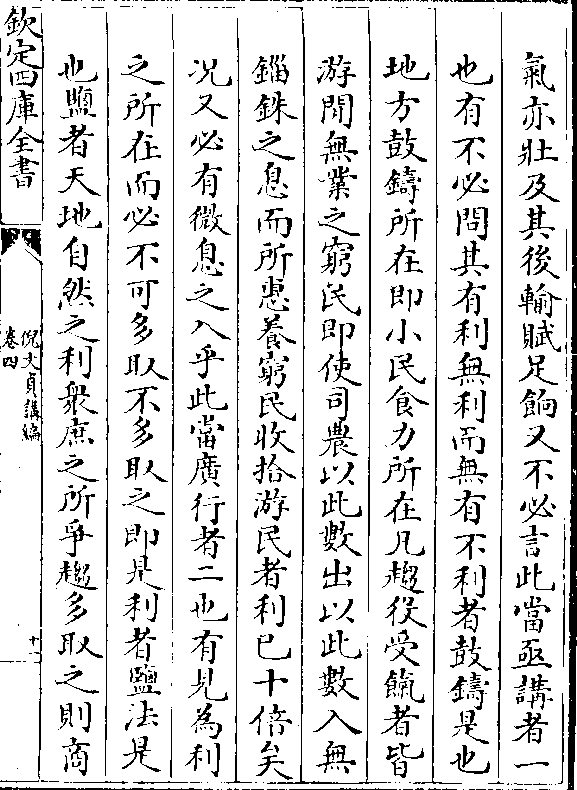 氣亦壯及其後輸賦足餉又不必言此當亟講者一
也有不必問其有利無利而無有不利者鼓鑄是也
地方鼓鑄所在即小民食力所在凡趨役受餼者皆
游閒無業之窮民即使司農以此數出以此數入無
錙銖之息而所惠養窮民收拾游民者利已十倍矣
况又必有微息之入乎此當廣行者二也有見為利
之所在而必不可多取不多取之即是利者鹽法是
也鹽者天地自然之利衆庶之所爭趨多取之則商
欽定四庫全書
倪文貞講編
卷四